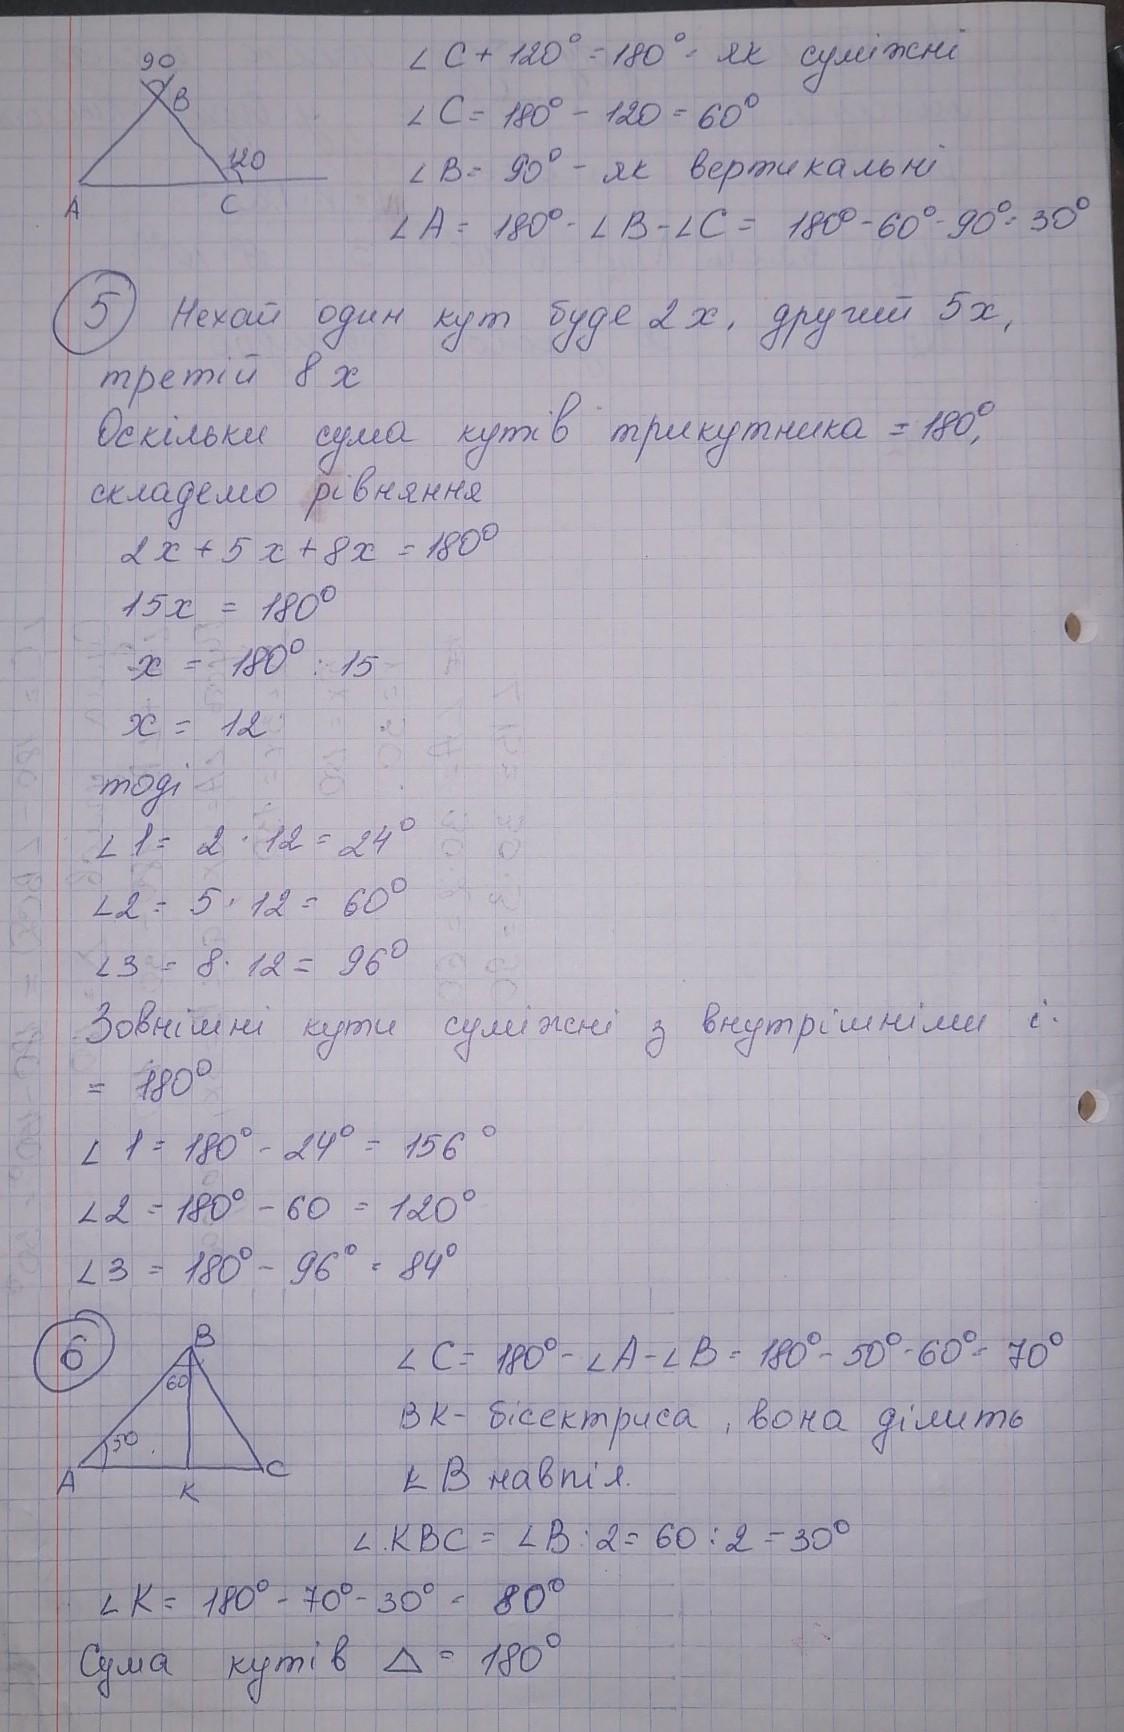 90
B
120
A
C
∠C + 120° = 180° - як суміжні
∠C = 180° - 120 = 60°
∠B = 90° - як вертикальні
∠A = 180° - ∠B - ∠C = 180° - 60° - 90° = 30°
5 Нехай один кут буде 2x, другий 5x,
третій 8x
Оскільки сума кутів трикутника = 180°,
складемо рівняння
2x + 5x + 8x = 180°
15x = 180°
x = 180° : 15
x = 12
тоді
∠1 = 2 · 12 = 24°
∠2 = 5 · 12 = 60°
∠3 = 8 · 12 = 96°
Зовнішні кути суміжні з внутрішніми і
= 180°
∠1 = 180° - 24° = 156°
∠2 = 180° - 60 = 120°
∠3 = 180° - 96° = 84°
6
B
60
50
A
K
C
∠C = 180° - ∠A - ∠B = 180° - 50° - 60° = 70°
BK - бісектриса, вона ділить
∠B навпіл.
∠KBC = ∠B : 2 = 60 : 2 = 30°
∠K = 180° - 70° - 30° = 80°
Сума кутів △ = 180°